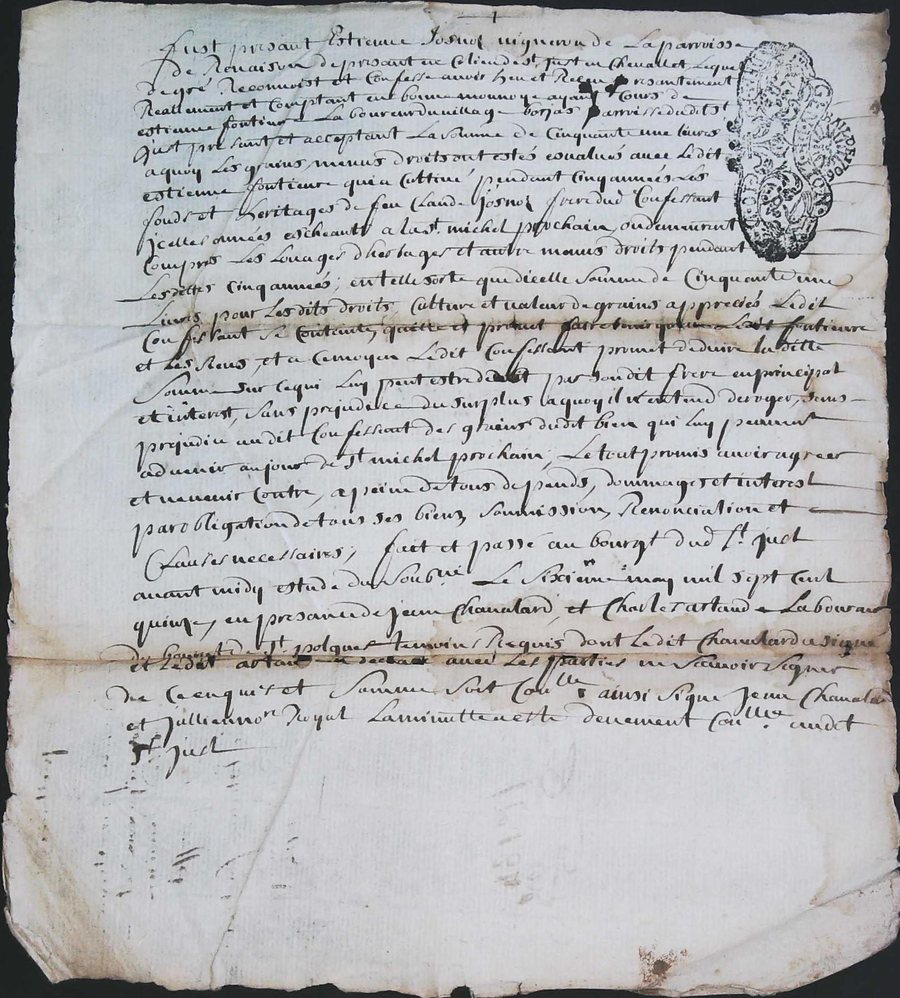 fust presant Estienne Josnoz vigneron de La parroisse
de Renaison de presant en Ce lieu de st just en Chevallet Lequel
de gré Reconnoist et Confesse avoir heu et Receu presantement
Reallement et Comptant en bonne monnoye ayant Cours de
estienne fontienre Laboureur du village borjas parroisse dudit st
Just presant et acceptant La somme de Cinquante une livres
a quoy Les grains, menus droits ont estés esvalués avec Ledit
estienne fontienre qui a Cultivé pendant Cinq années Les
fonds et heritages de feu Claude josnoz frere dud Confessant
jcelles années escheants a la st michel prochain, ou demeurent
Compris Les Louages d'herbages et autre menus droits pendant
Lesdittes Cinq années; en telle sorte que d'icelle somme de Cinquante une
Livres pour Lesdits droits Culture et valleur de grains appreciés Ledit
Confessant se Contente, quitte et promet faire tenir quitte Ledit fontienre
et Les siens, et a Ce moyen Ledit Confessant promet deduire laditte
Somme sur Ce qui Luy peut estre deub par sondit frere en principal
et interest, sans prejudice du surplus a quoy il n'entend deroger, sans
prejudice audit Confessant des grains dudit bien qui Luy peuvent
advenir au jour de st michel prochain; Le tout promis avoir agreer
et ne venir Contre, a peine de tous depends, dommages et interest
par obligation de tous ses biens, sommission, Renonciation et
Clauses necessaires, fait et passé au bourgt dud st just
avant midy estude du soubné Le sixienme may mil sept cent
quinze, en presance de jean Chavalard, et Charles artaud Laboureur
du bourgt de st polgues temoins Requis dont Ledit Chavalard a signe
et Ledit artaud a declaré avec Les parties ne scavoir signer
de Ce enquis et Somme soit Conlle ainsi signe jean Chavalard
et jullien nore Royal La minutte est devement Conllee audit
st just